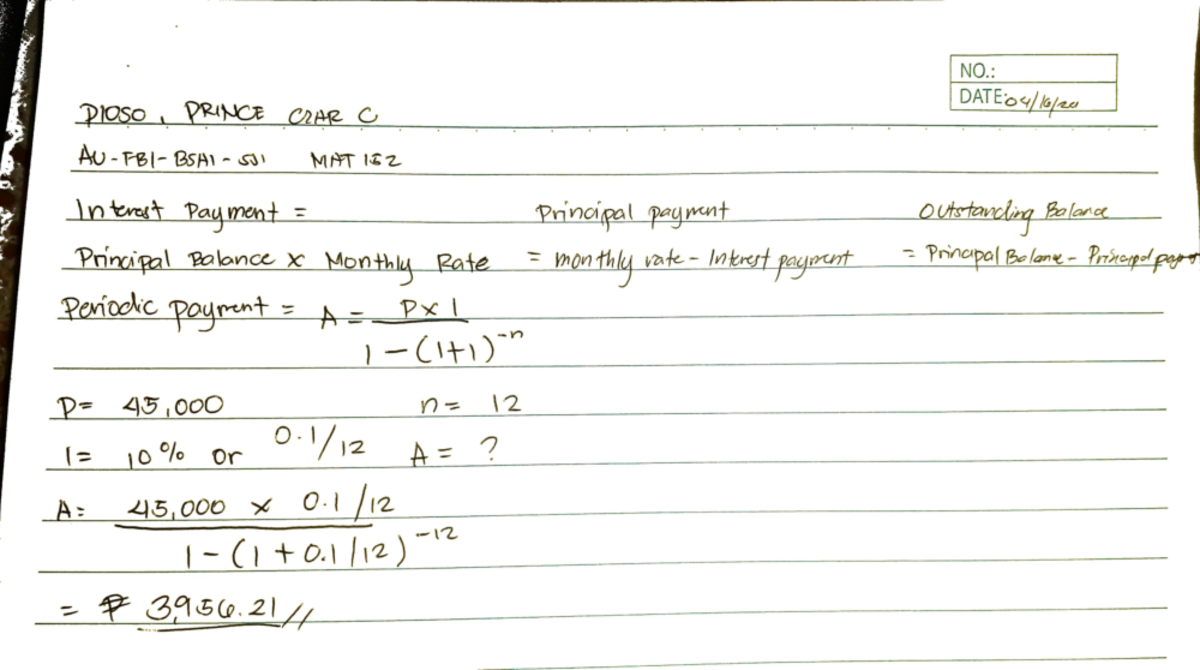 NO.:
DATE:04/16/20
DIOSO, PRINCE CZAR C
AU-FBI-BSAI-SJ1 MAT 152
Interest Payment = Principal payment Outstanding Balance
Principal Balance x Monthly Rate = monthly rate - Interest payment = Principal Balance - Principal
Periodic payment = A = P x I
1 - (1+1)^-n
P= 45,000 n= 12
I= 10% or 0.1/12 A= ?
A= 45,000 x 0.1/12
1 - (1 + 0.1/12)^-12
= ₱ 3,956.21//